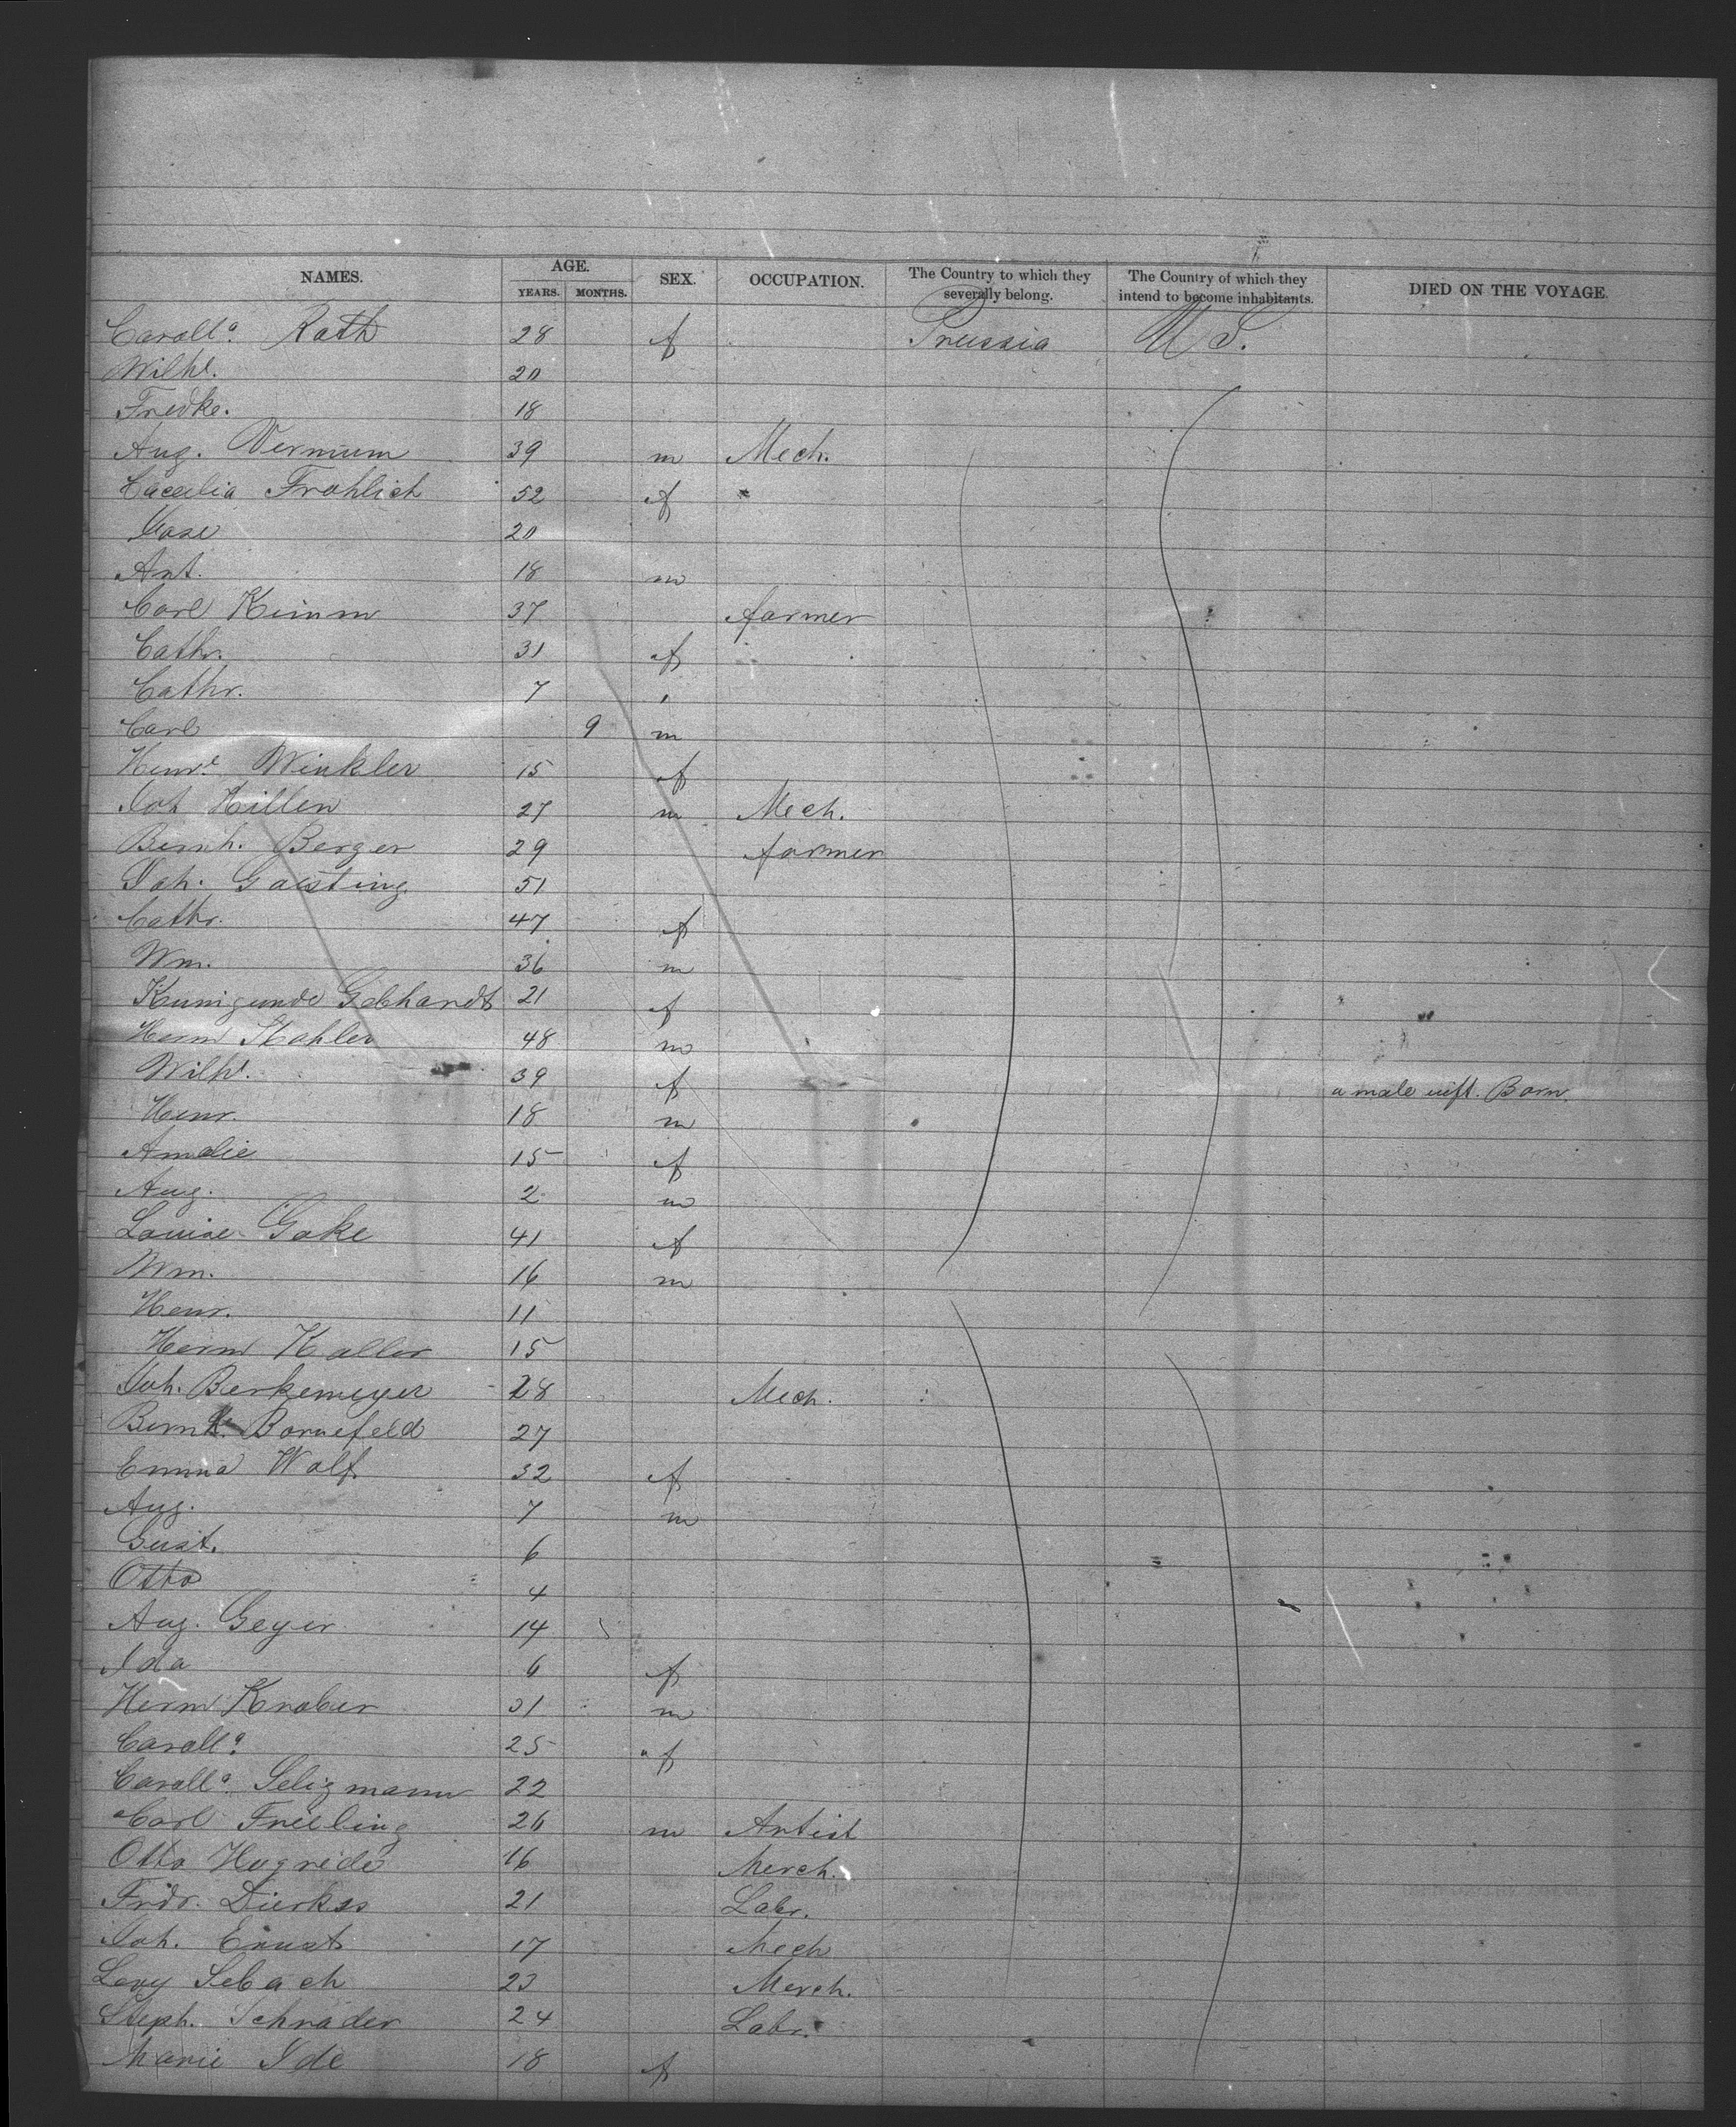 NAMES. AGE. SEX. OCCUPATION. The Country to which they severally belong. The Country of which they intend to become inhabitants. DIED ON THE VOYAGE.
YEARS. MONTHS.
Caroll<sup>a</sup>. Rath 28 f Prussia U S.
Wilhe. 20
Fredke. 18
Aug. Vermum 39 m Mech.
Caecilia Frohlich 52 f "
20
Ant. 18 m
Carl Kimm 37 farmer
Cathr. 31 f
Cathr. 7 "
Carl 9 m
Henr<sup>e</sup>. Winkler 15 f
Joh Hillen 27 m Mech.
Bernh. Berger 29 farmer
Joh. Gaesting 51
Cathr. 47 f
Wm. 36 m
Kunigunde Gebhardt 21 f
Herm Stahler 48 m
Wilhe. 39 f a male inft. Born.
Henr. 18 m
Amalie 15 f
Aug. 2 m
Louise Gake 41 f
Wm. 16 m
Henr. 11
Herm Kaller 15
Joh. Berkemeyer 28 Mech.
Bernh. Bornefeld 27
Emma Wolf 32 f
Aug. 7 m
Gust. 6
Otto 4
Aug. Geyer 14
Ida 6 f
Herm Knaber 31 m
Caroll<sup>a</sup>. 25 f
Caroll<sup>a</sup>. Seligmann 22
Carl Freeling 26 m Artist
Otto Hugrede 16 Merch.
Fridr. Dierkes 21 Labr.
Joh. Ernst 17 Mech
Levy Sebach 23 Merch.
Steph. Schrader 24 Labr.
Marie Ide 18 f